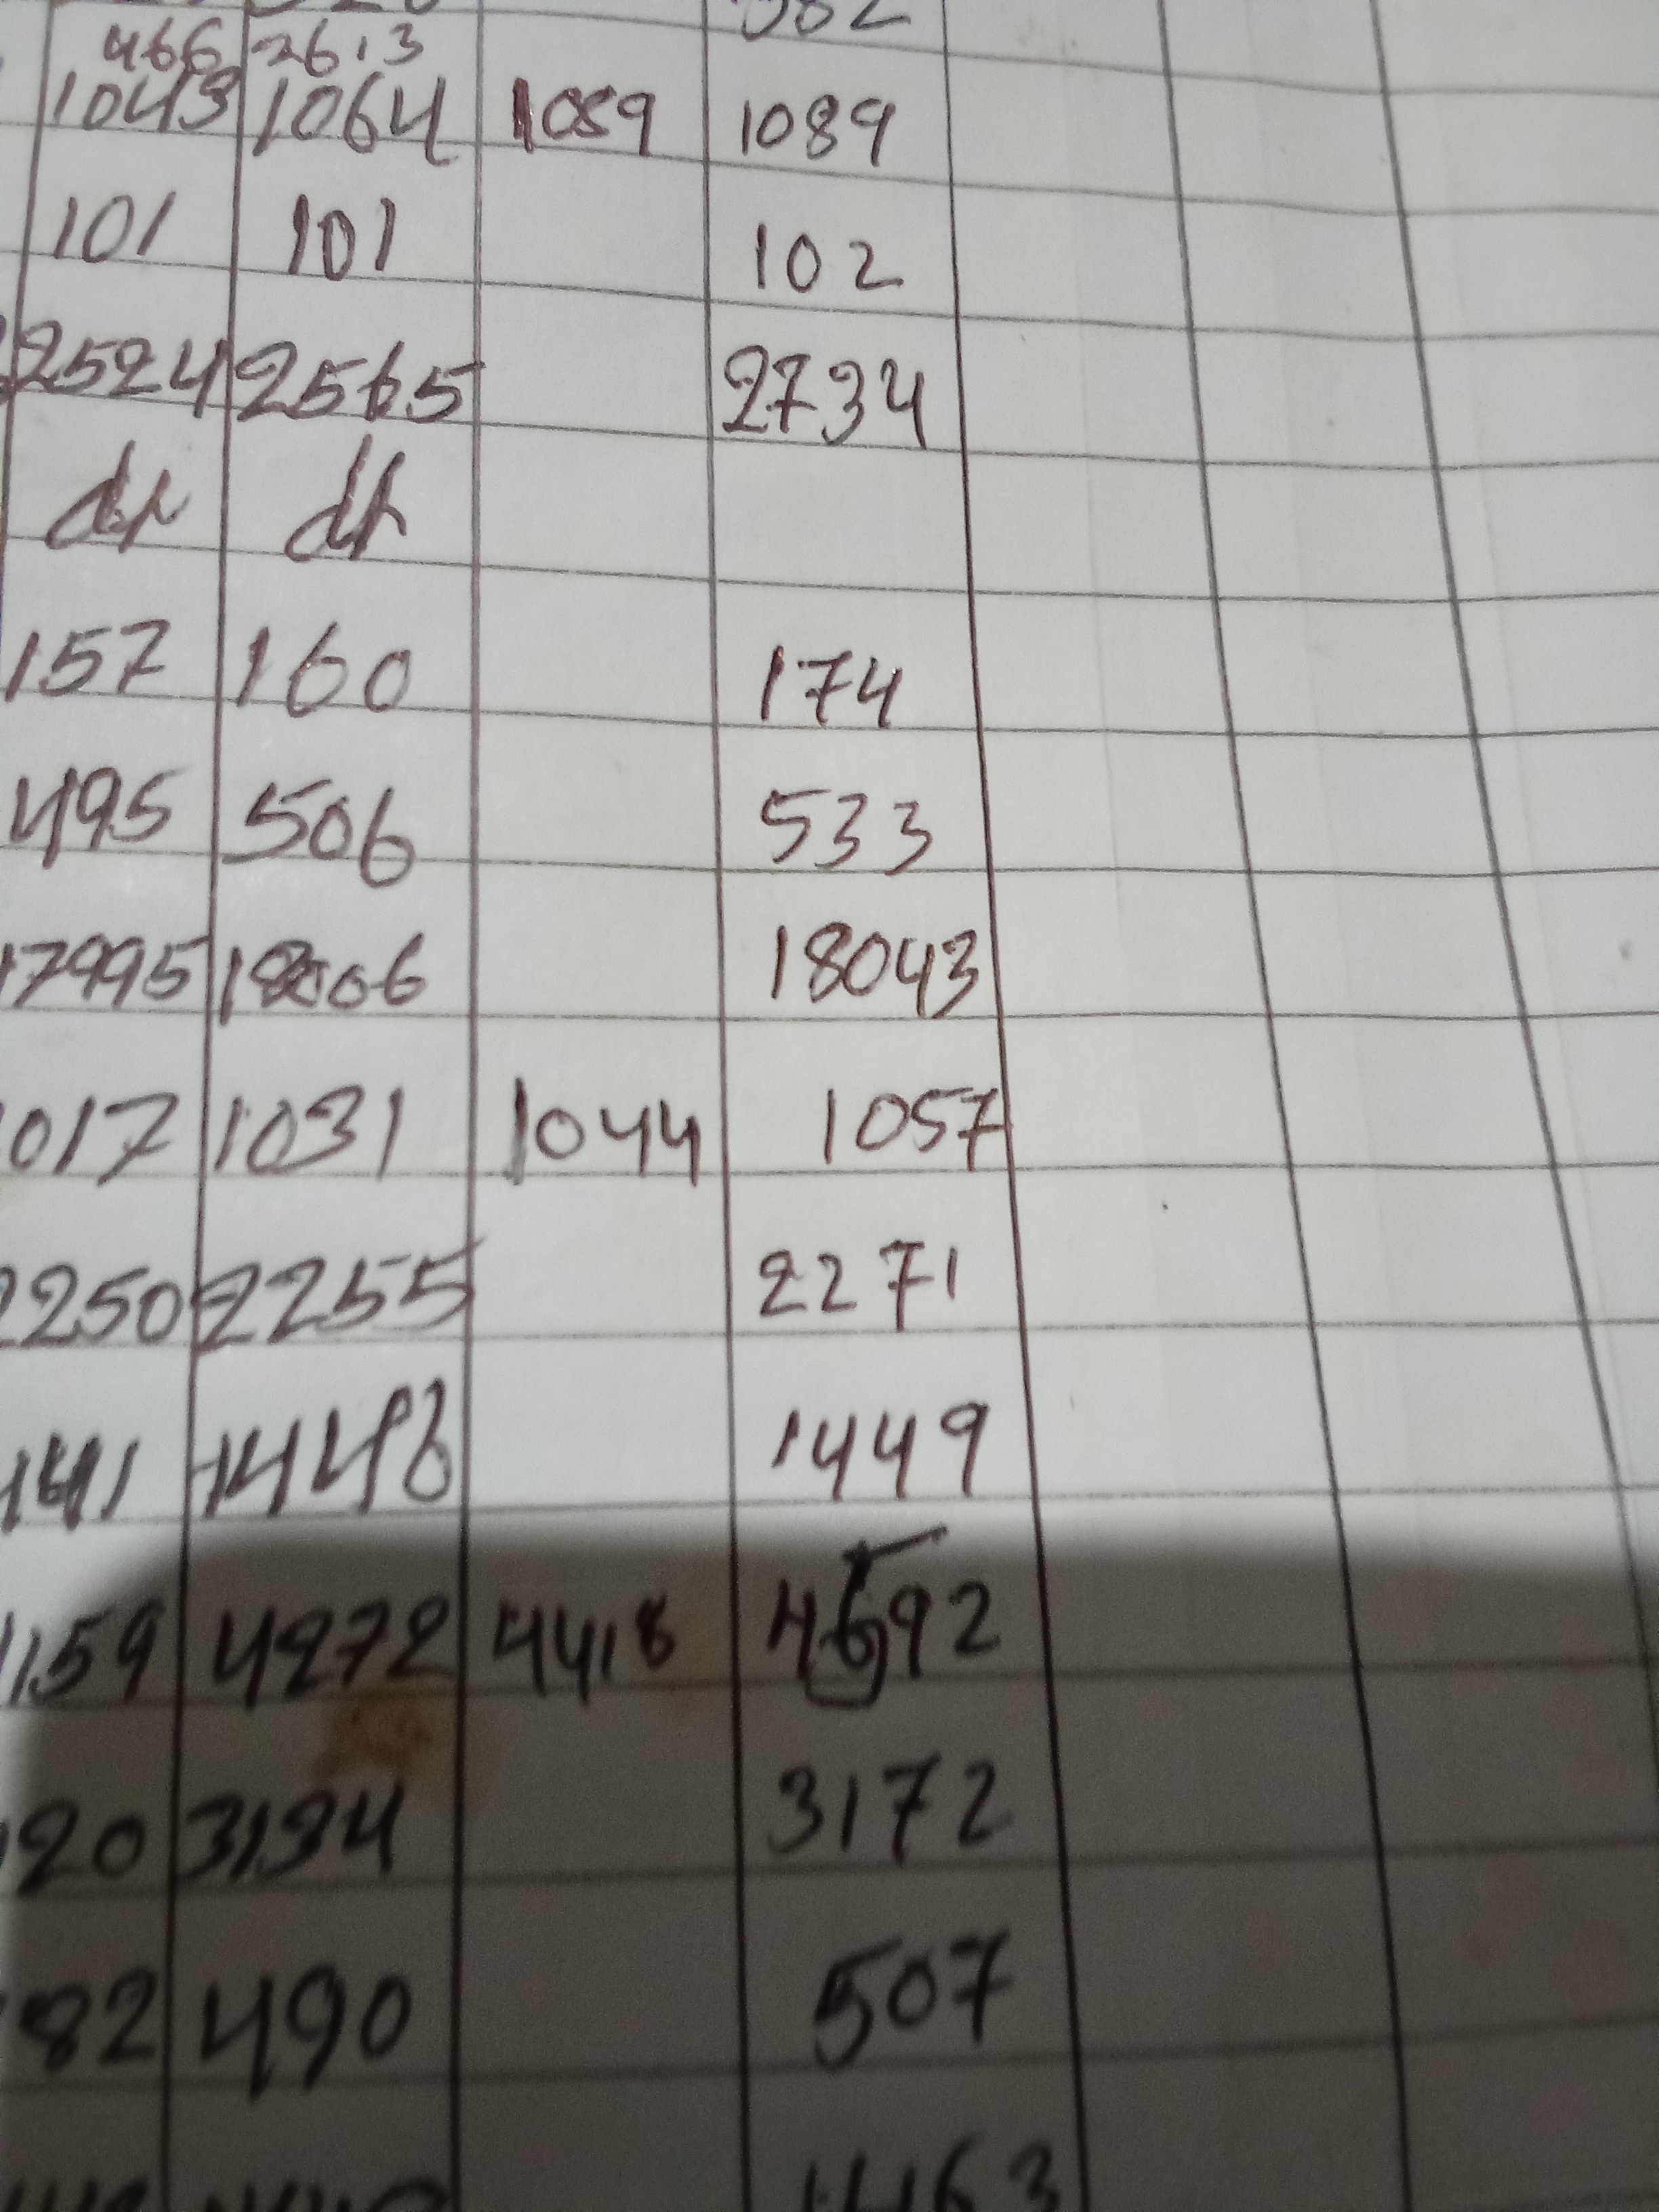 466 2613
1043 1064 1089 1089
101 101 102
2524 2565 2734
157 160 174
495 506 533
17995 18006 18043
017 1031 1044 1057
2250 2255 2271
1441 1448 1449
159 4272 4418 4592
20 3134 3172
82 490 507